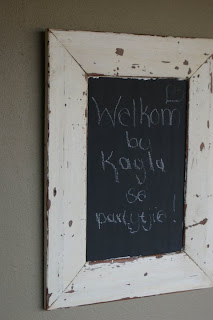 Welkom
by
Kayla
se
partytjie!